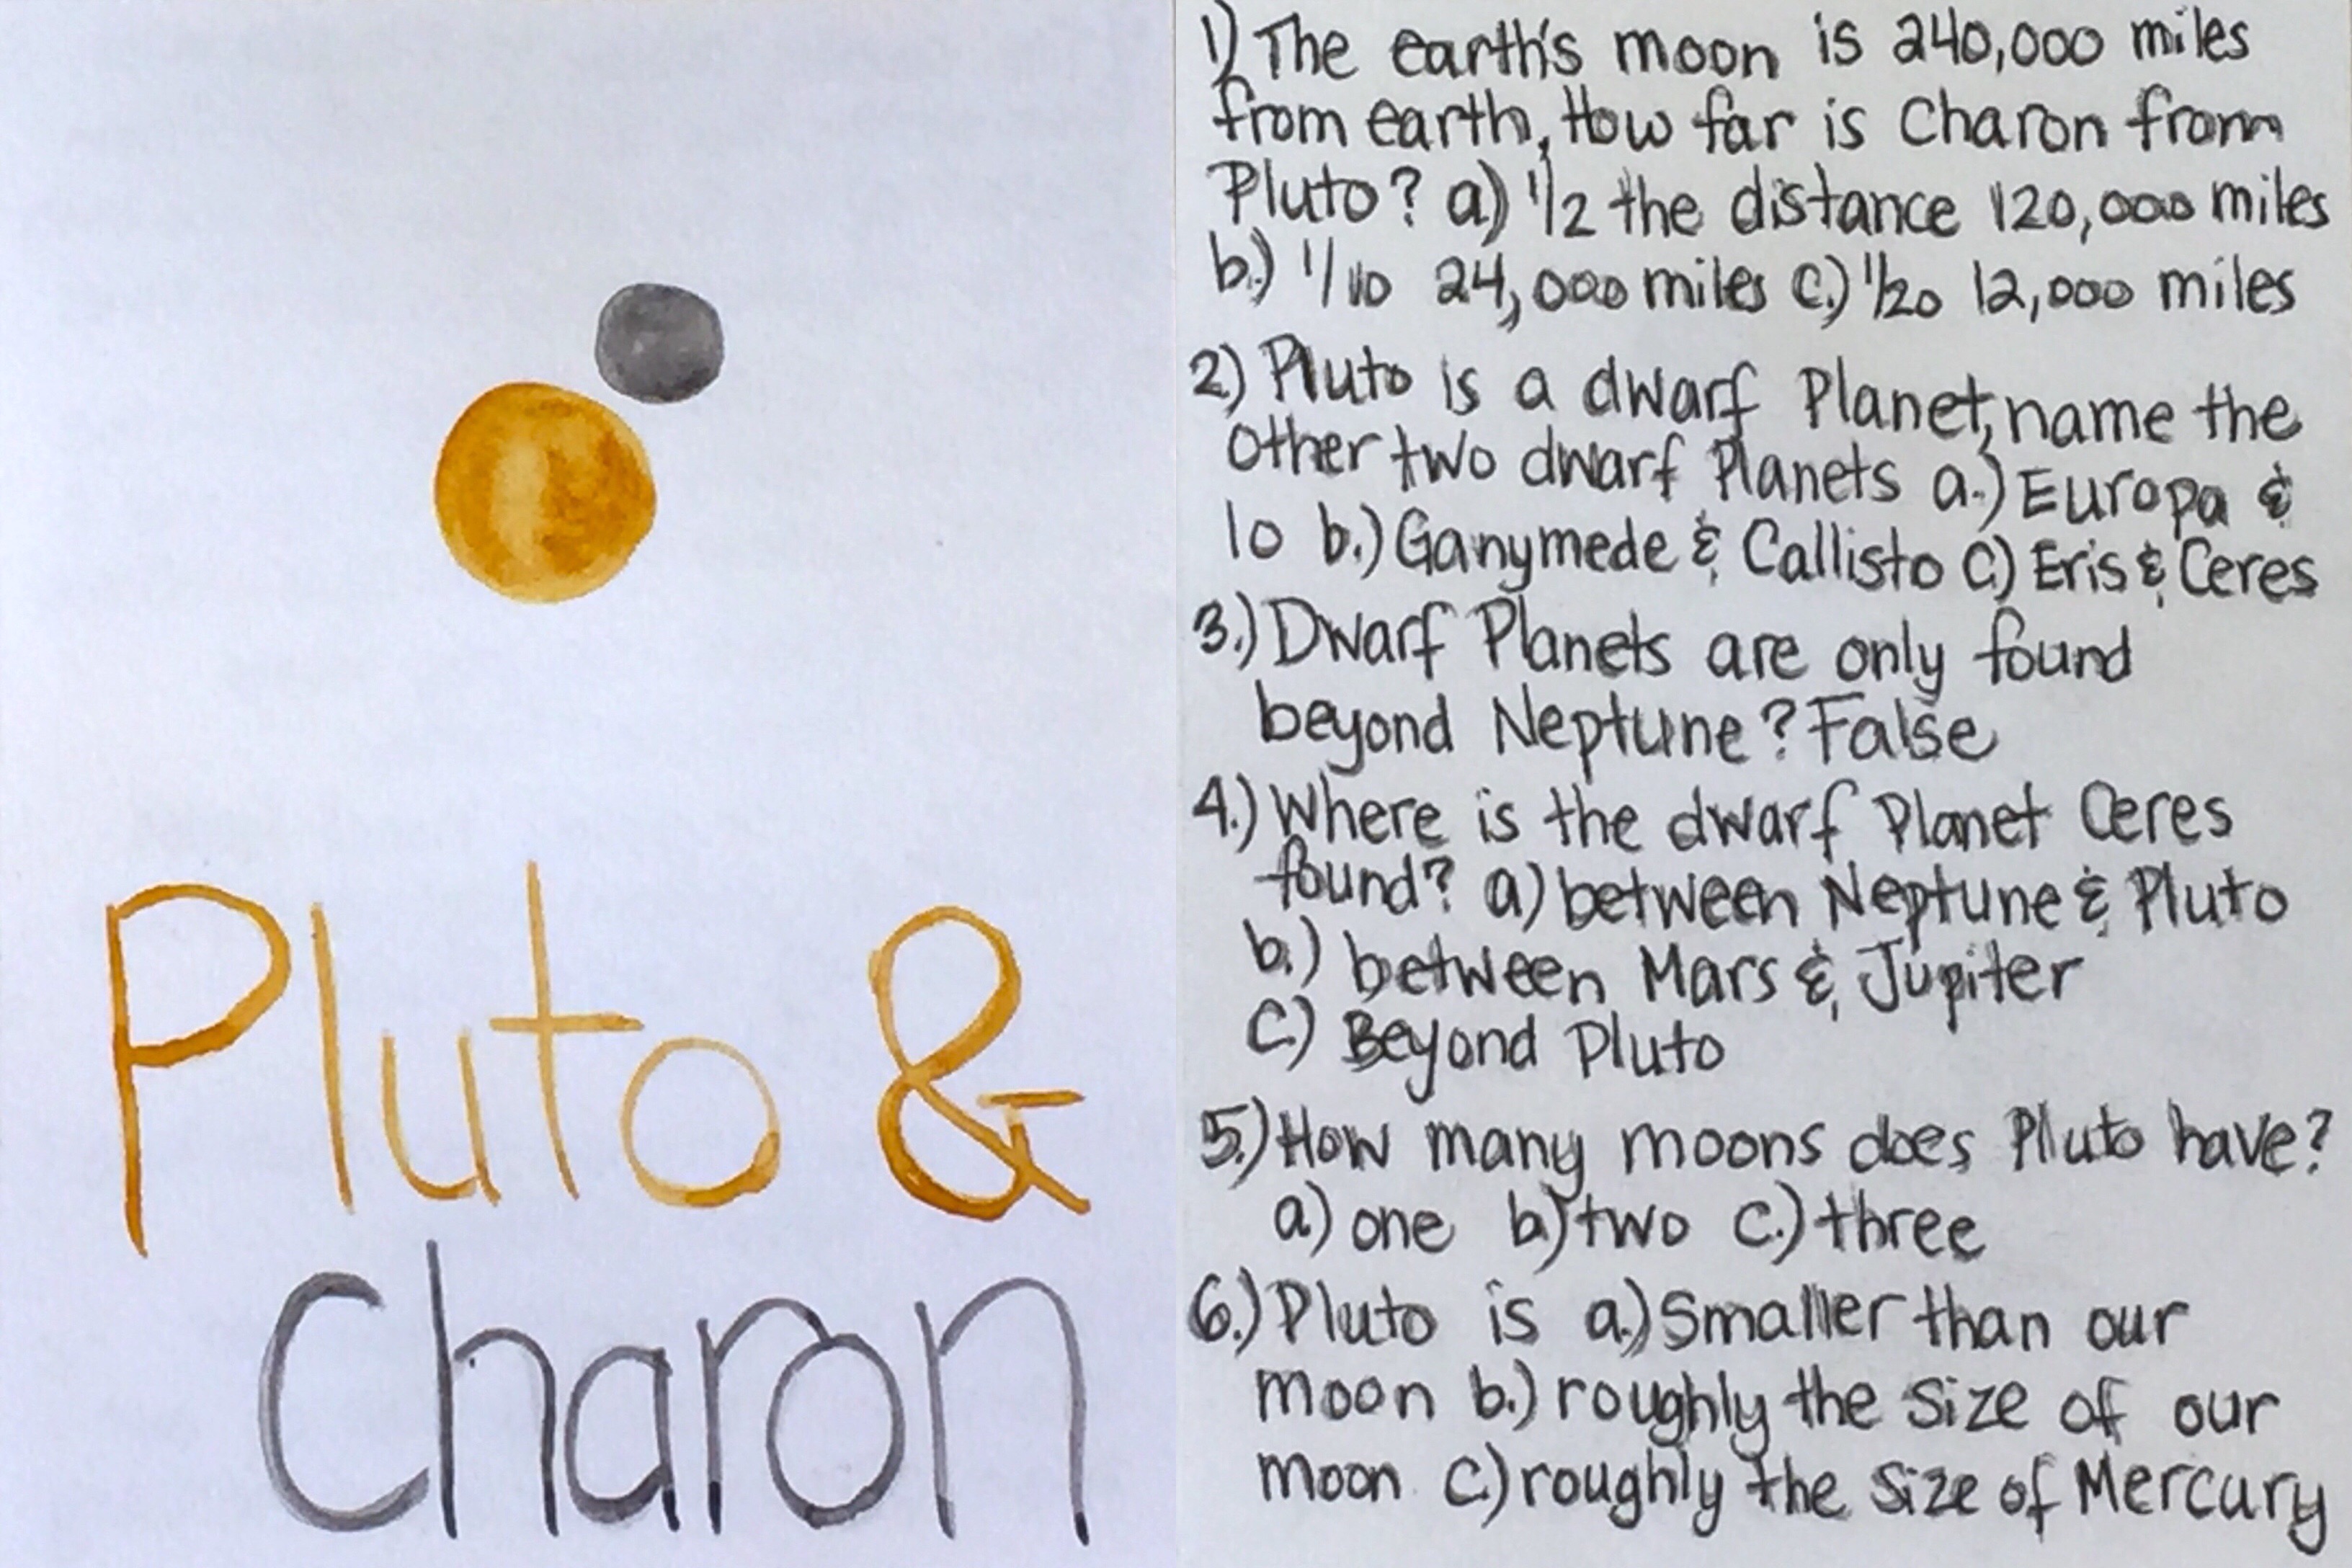 Pluto &
Charon
1) The earth's moon is 240,000 miles
from earth, How far is Charon from
Pluto? a) 1/2 the distance 120,000 miles
b.) 1/10 24,000 miles c.) 1/20 12,000 miles
2) Pluto is a dwarf Planet, name the
other two dwarf Planets a.) Europa &
Io b.) Ganymede & Callisto c) Eris & Ceres
3.) Dwarf Planets are only found
beyond Neptune? False
4.) Where is the dwarf Planet Ceres
found? a) between Neptune & Pluto
b.) between Mars & Jupiter
C) Beyond Pluto
5.) How many moons does Pluto have?
a) one b.) two c.) three
6.) Pluto is a.) Smaller than our
moon b.) roughly the size of our
moon c.) roughly the size of Mercury